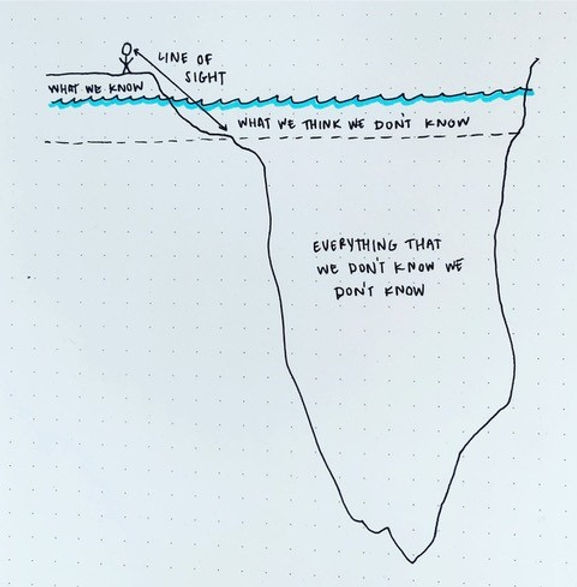 LINE OF
SIGHT
WHAT WE KNOW
WHAT WE THINK WE DON'T KNOW
EVERYTHING THAT
WE DON'T KNOW WE
DON'T KNOW